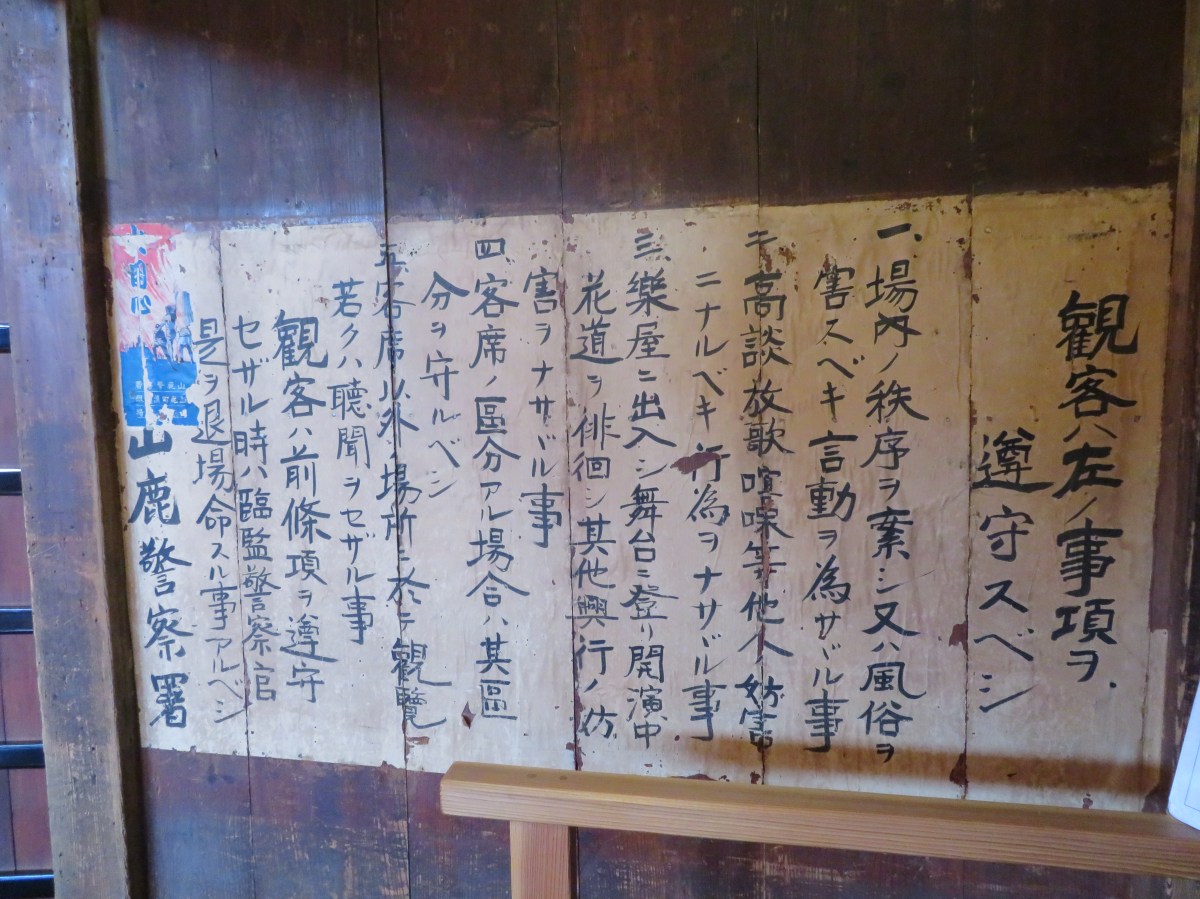 観客ハ左ノ事項ヲ
遵守スベシ
一、場内ノ秩序ヲ紊シ又ハ風俗ヲ
害スベキ言動ヲ為サヾル事
二、高談放歌喧噪等他人ノ妨害
ニナルベキ行為ヲナサヾル事
三、樂屋ニ出入シ舞台ニ登リ開演中
花道ヲ徘徊シ其他興行ノ妨
害ヲナサヾル事
四、客席ノ區分アル場合ハ其區
分ヲ守ルベシ
五、客席以外ノ場所ニ於テ観覽
若クハ聴聞ヲセザル事
観客ハ前條項ヲ遵守
セザル時ハ臨監警察官
是ヲ退場命スル事アルベシ
山鹿警察署